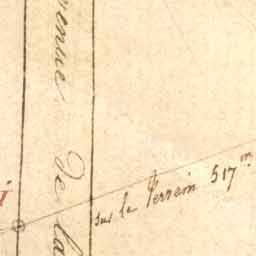 venue de la
sur le Terrain 517<sup>m</sup>